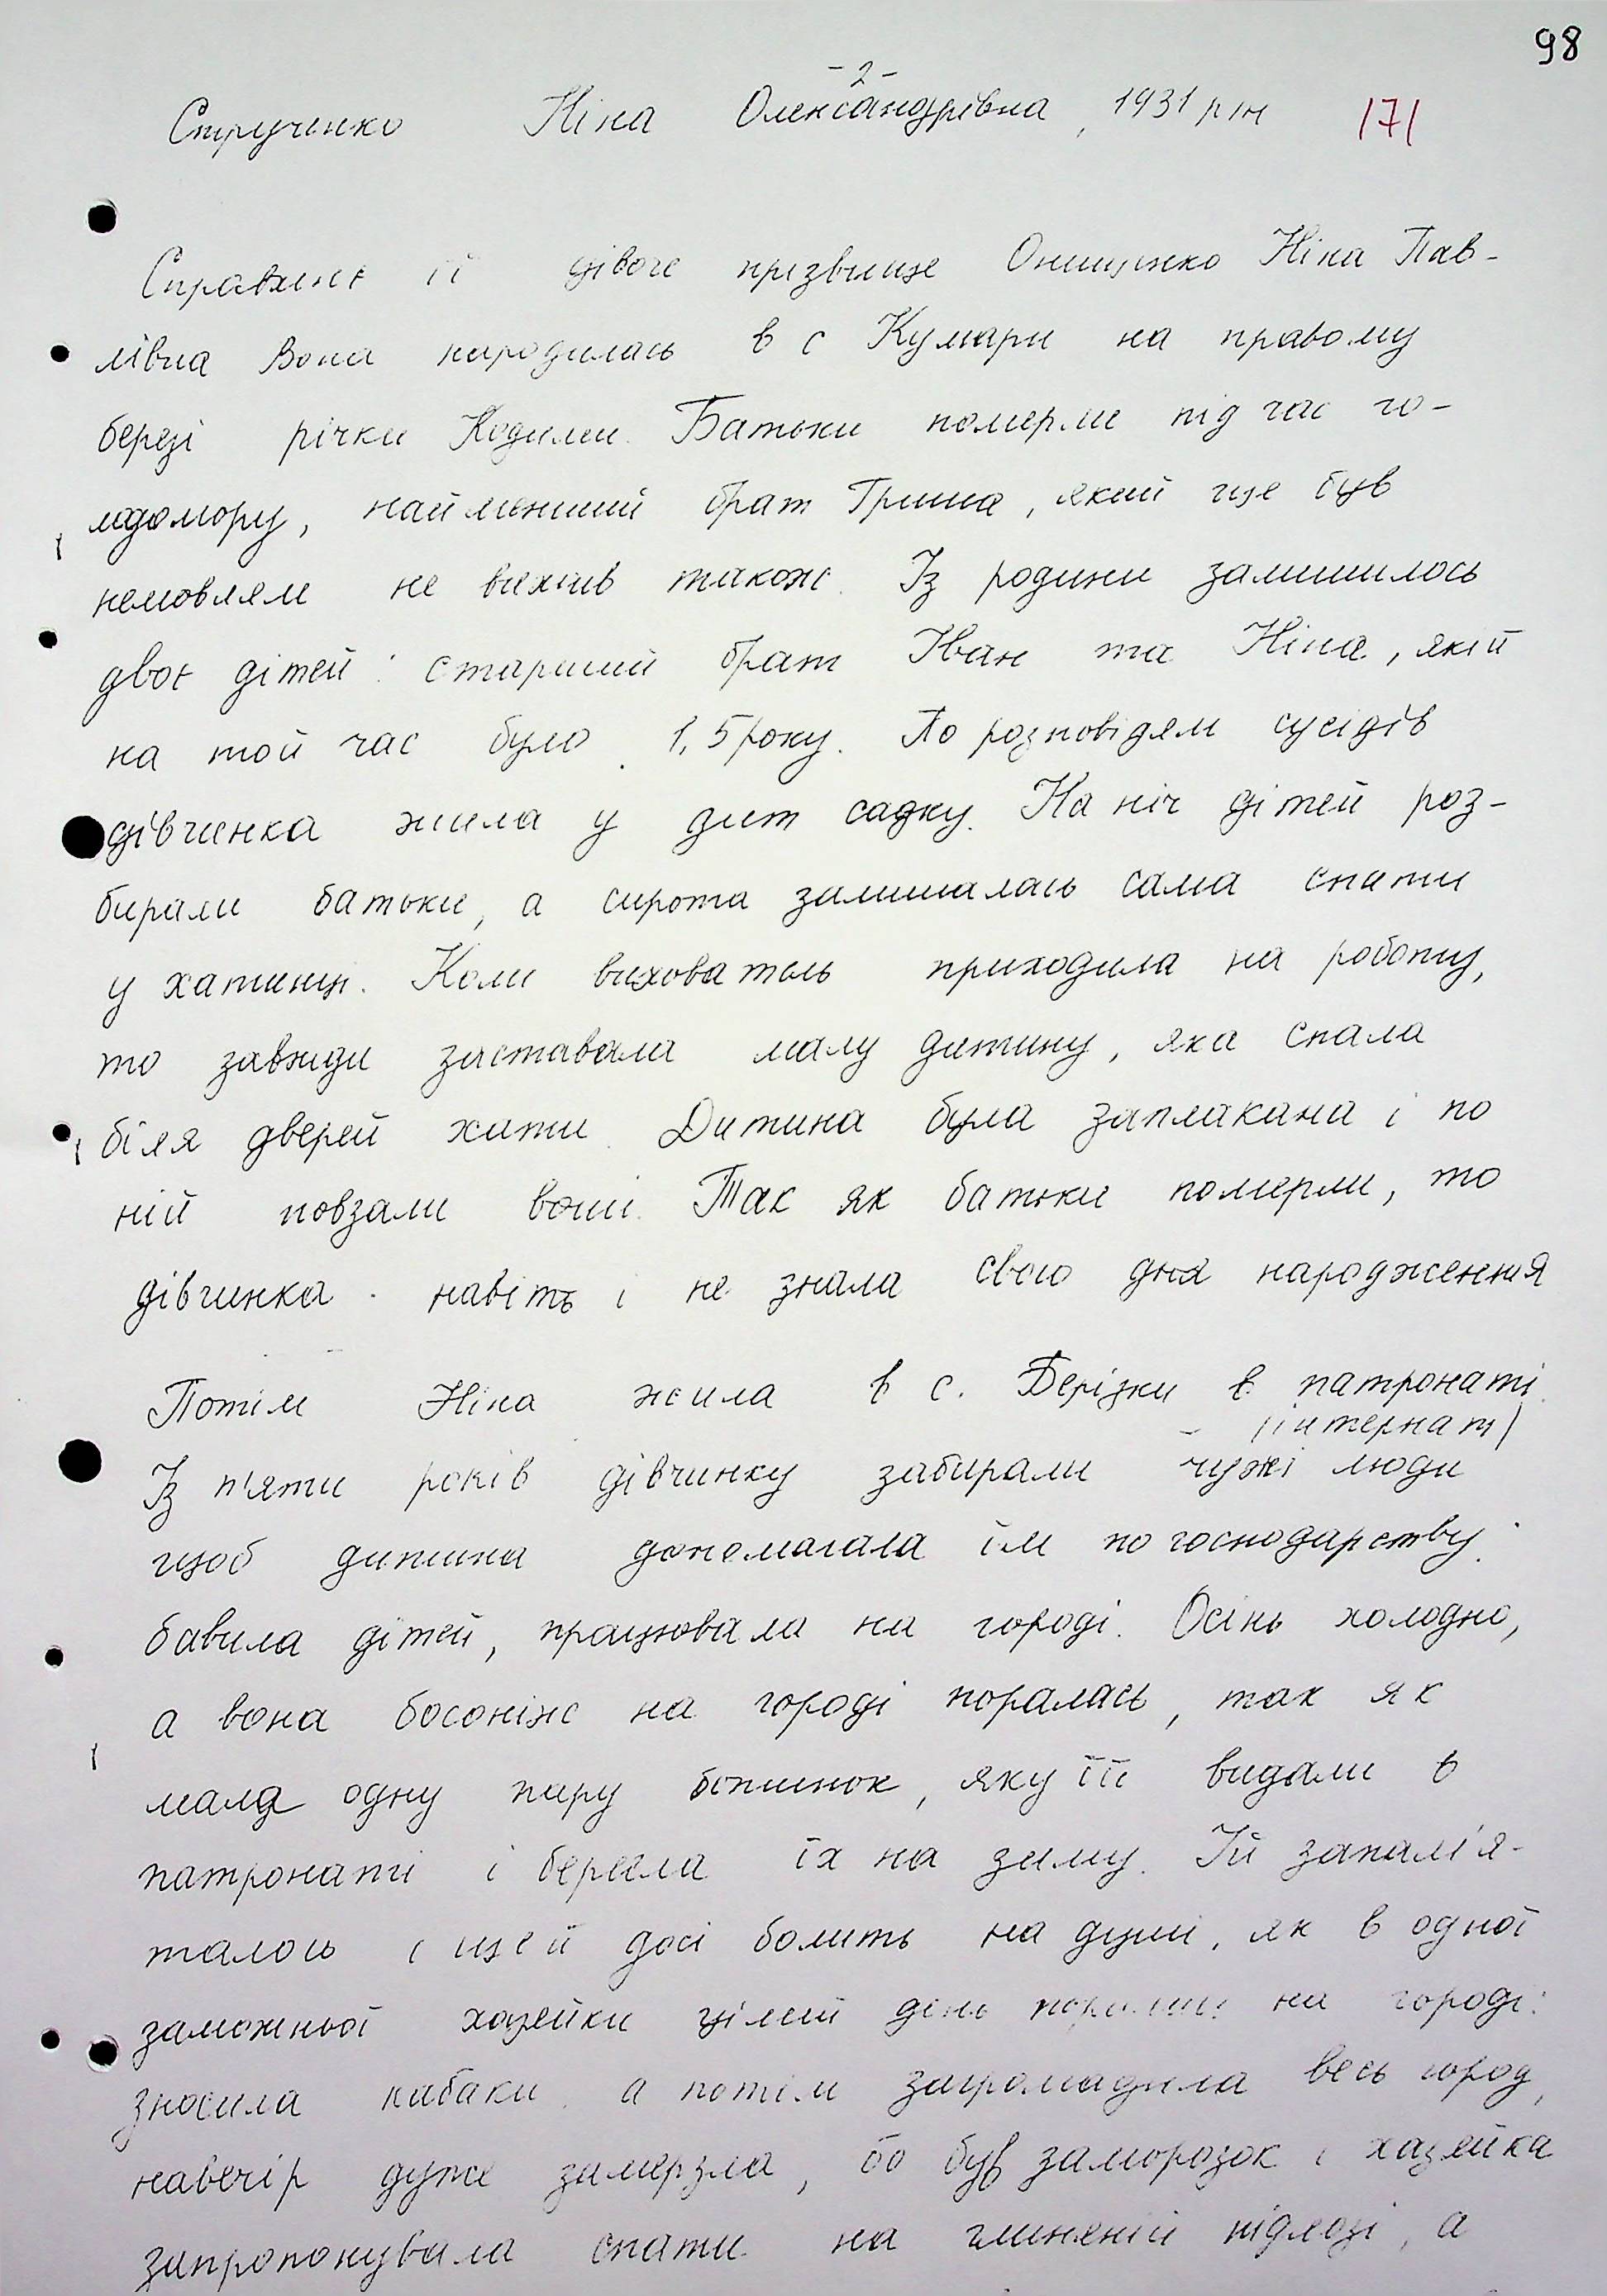 98
-2-
Струченко Ніна Олександрівна, 1931 р/н 171
Справжнє її дівоче прізвище Онищенко Ніна Пав-
лівна Вона народилась в с Кумари на правому
березі річки Кодими. Батьки померли під час го-
лодомору, найменший брат Гриша, який ще був
немовлям не вижив також. Із родини залишилось
двоє дітей: старший брат Іван та Ніна, якій
на той час було 1,5 року. По розповідям сусідів
дівчинка жила у дит садку. На ніч дітей роз-
бирали батьки, а сирота залишалась сама спати
у хатинці. Коли вихователь приходила на роботу,
то завжди заставала малу дитину, яка спала
біля дверей хати. Дитина була заплакана і по
ній повзали воші. Так як батьки померли, то
дівчинка навіть і не знала свого дня народження
Потім Ніна жила в с. Берізки в патронаті.
/інтернат/
Із п'яти років дівчинку забирали чужі люди
щоб дитина допомагала їм по господарству:
бавила дітей, працювала на городі. Осінь холодно,
а вона босоніж на городі поралась, так як
мала одну пару ботинок, яку її видали в
патронаті і берегла їх на зиму. Їй запам'я-
талось і ще й досі болить на душі, як в одної
заможньої хазяйки цілий день на городі:
зносила кабаки, а потім загромадила весь город,
навечір дуже замерзла, бо був заморозок і хазяйка
запропонувала спати на глиняній підлозі, а